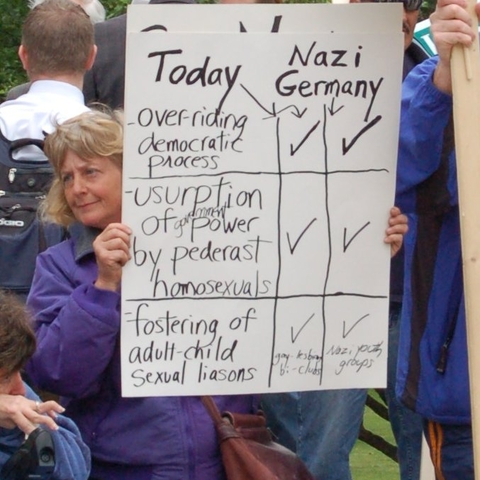 Today
Nazi
Germany
-over-riding
democratic
process
✓ ✓
-usurption
of government power
by pederast
homosexuals
✓ ✓
-fostering of
adult-child
sexual liasons
✓ ✓
gay-lesbian
bi-clubs
Nazi youth
groups